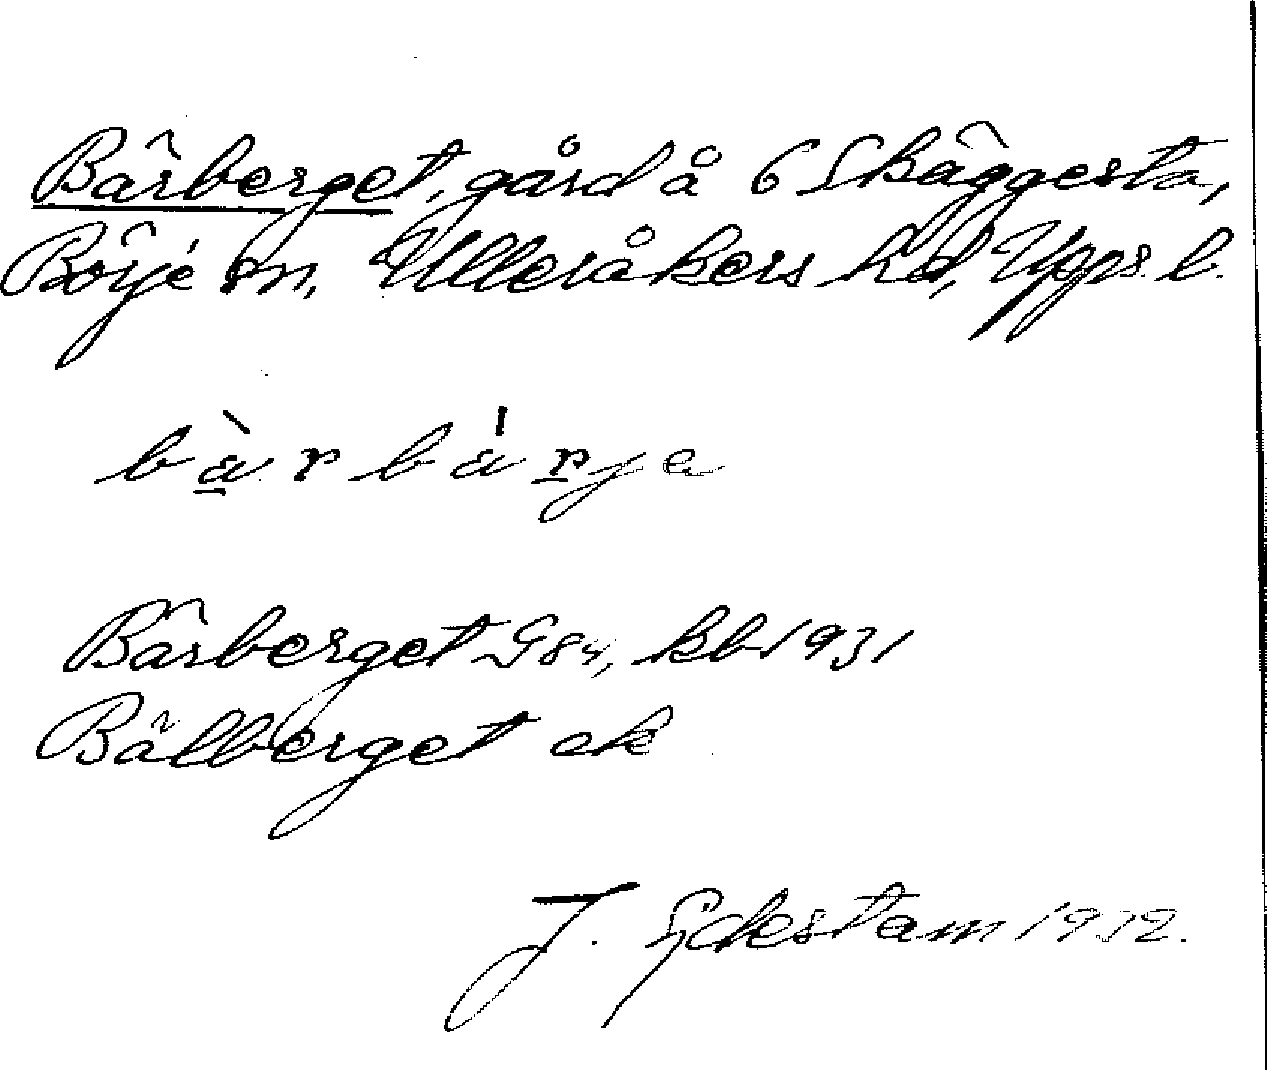 Bärberget, gård å 6 Skäggesta,
Börje sn, Ulleråkers hd, Upps. l.
bàrbárja
Bärberget G84, kb 1931
Bälberget ek
J. Eckestam 1932.